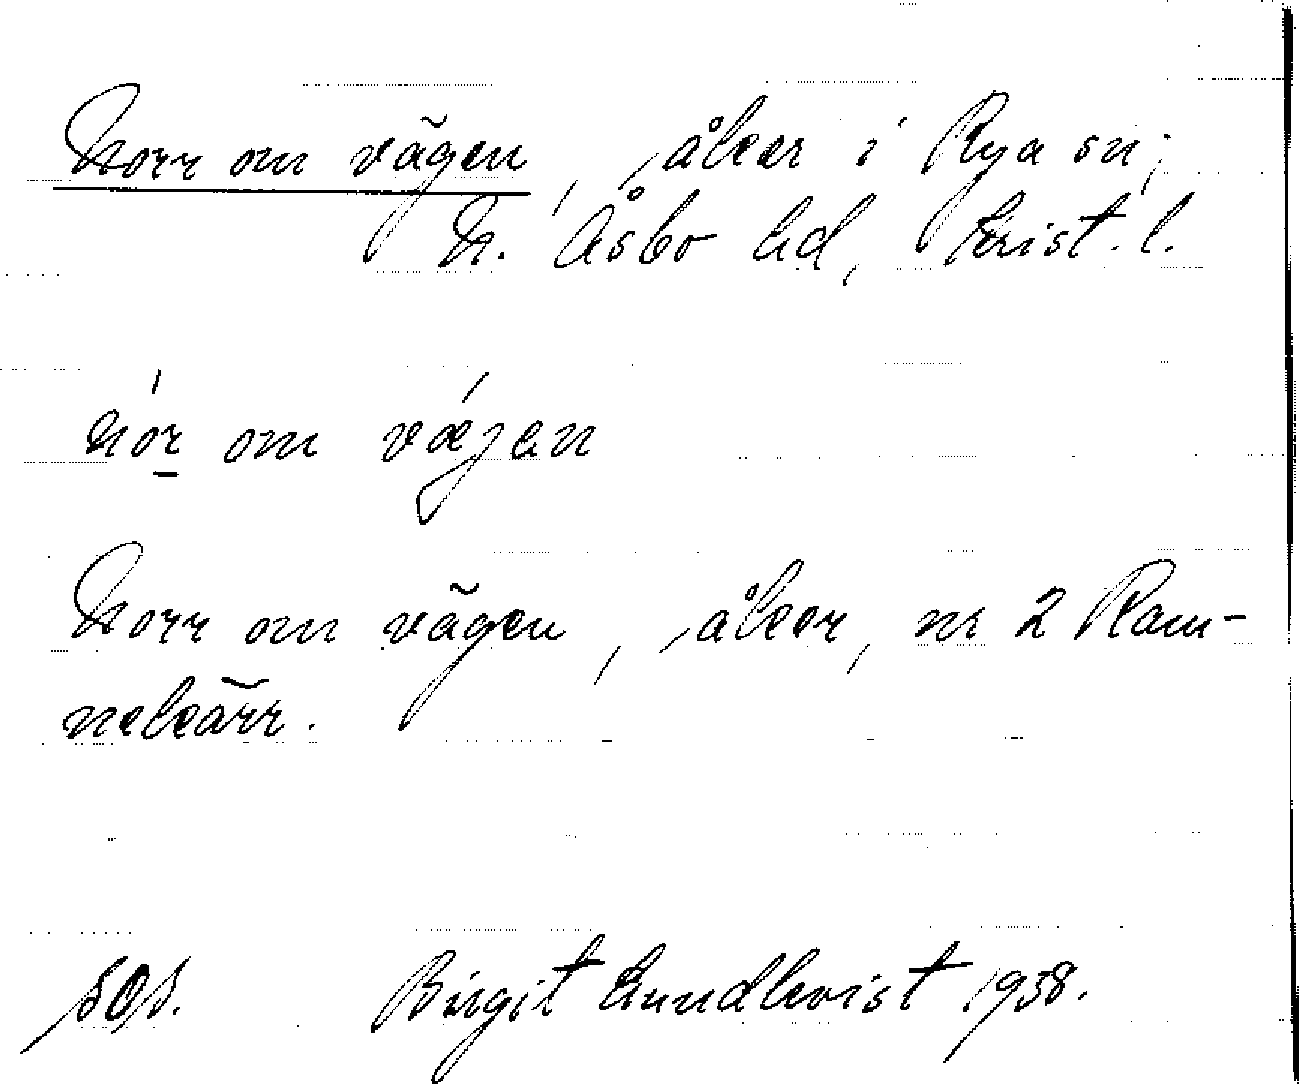 Norr om vägen, åker i Rya sn,
N. Åsbo hd, Krist. l.
nór om vǽjen
Norr om vägen, åker, nr 2 Ram-
nekärr.
SOS. Birgit Lundkvist 1938.